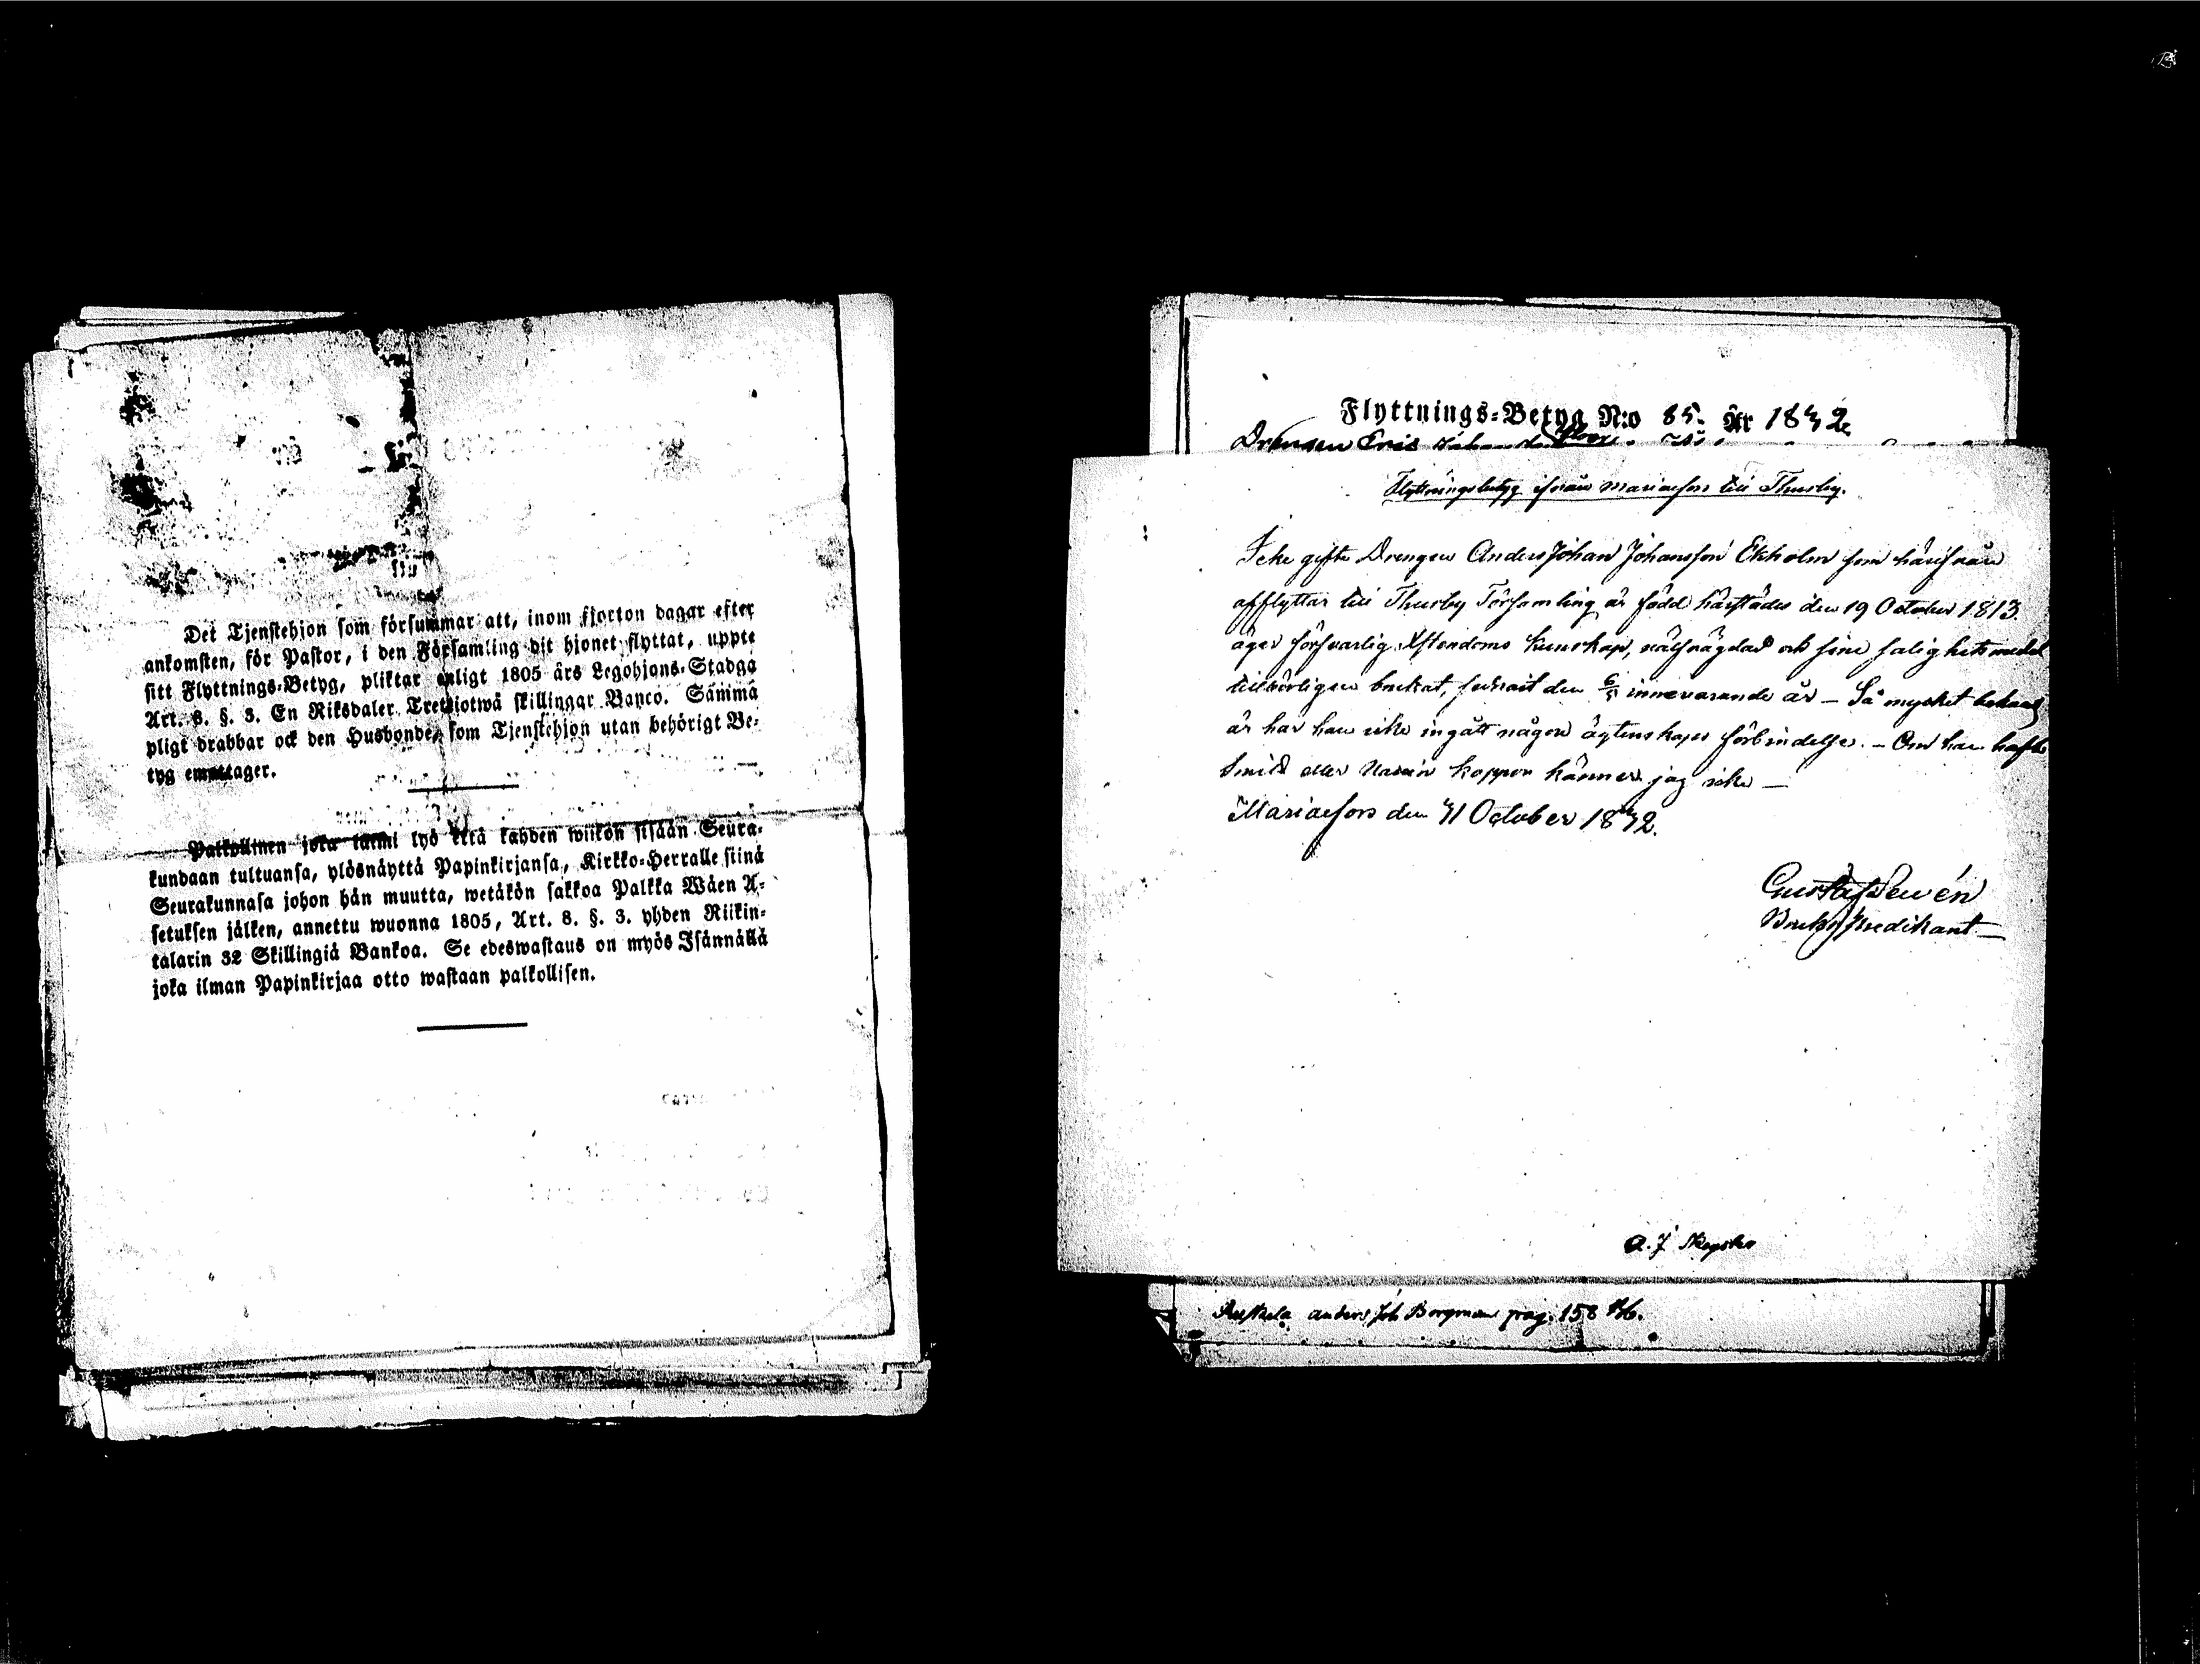 Det Tjenstehjon som försummar att, inom fjorton dagar efter
ankomsten, för Pastor, i den Församling dit hjonet flyttat, uppte
sitt Flyttnings-Betyg, pliktar enligt 1805 års Legohjons-Stadga
Art. 8. §. 3. En Riksdaler Trettiotwå skillingar Banco. Samma
pligt drabbar ock den Husbonde, som Tjenstehjon utan behörigt Be-
tyg emottager.
Palkollinen joka laimi lyö että kahden wiikon sisään Seura-
kundaan tultuansa, ylösnäyttä Papinkirjansa, Kirkko-Herralle siinä
Seurakunnasa johon hän muutta, wetäkön sakkoa Palkka Wäen A-
setuksen jälken, annettu wuonna 1805, Art. 8. §. 3. yhden Riikin-
talarin 32 Skillingiä Bankoa. Se edeswastaus on myös Isännällä
joka ilman Papinkirjaa otto wastaan palkollisen.
Flyttnings-Betyg N:o 85. År 1832
Drengen Eric
Flyttningsbetyg ifrån Mariaefors till Thusby.
Icke gifte Drengen Anders Johan Johansson Ekholm som härifrån
afflyttar till Thusby Församling är född härstädes den 19 October 1813.
äger försvarlig Xstendoms kunskap, nätfrägdad och sine salighetsmedel
tillbörligen brukat, sednast den innevarande år – Så mycket bekant
är har han icke ingått någon ägtenskaps förbindelse. – Om han haft
eller koppor känner jag icke –
Mariaefors den 31 October 1832.
Gustaf
Bruks Predikant –
A. J
Anders Joh Bergman pag. 158